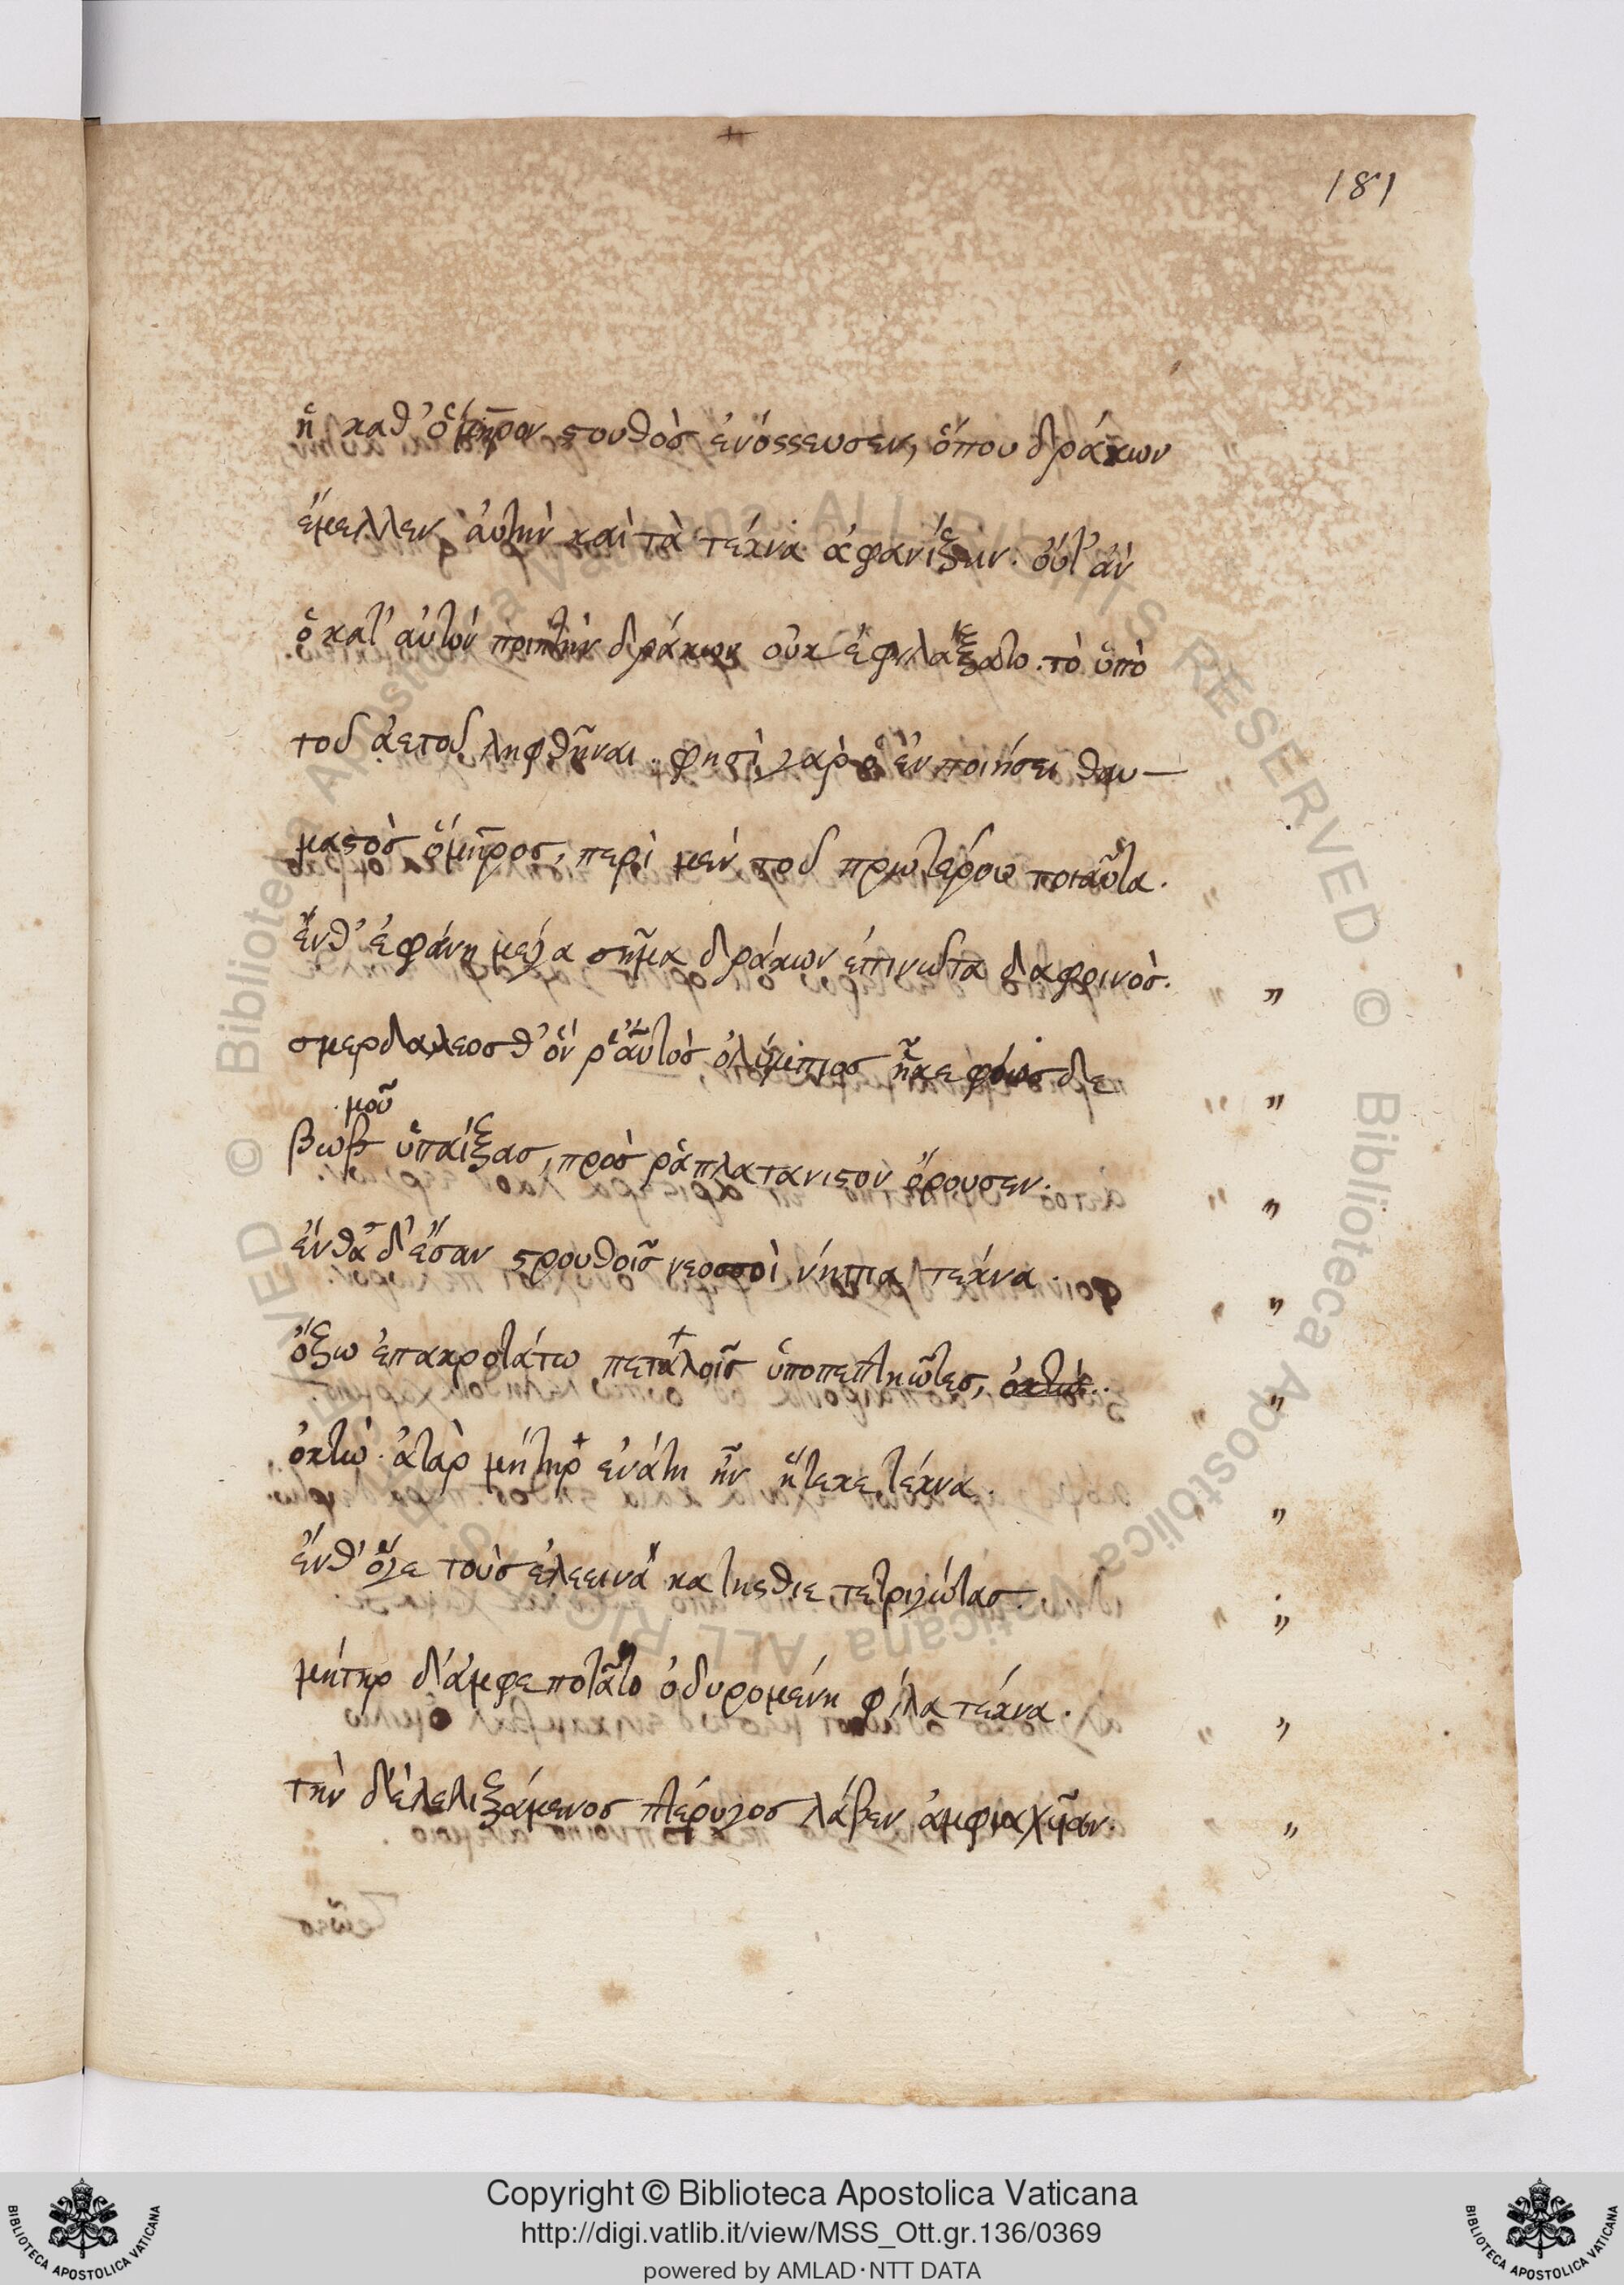 181
ἢ καθ' ὅμηρον στουθὸσ ἐνόσσευσεν, ὅπου δράκων
ἔμελλεν αὐτὴν καὶ τὰ τέκνα ἀφανίξειν. οὔτ' ἂν
ὁ κατ' αὐτὸν δράκων οὐκ ἐφυλάξατο. τὸ ὑπὸ
τοῦ ἀετοῦ ληφθῆναι. φησὶ γὰρ ὁ ἐν ποιήσει θαυ-
μαστὸσ ὅμηροσ, περὶ μὲν τοῦ πρωτέρου τοιαῦτα.
ἔνθ' ἐφάνη μέγα σῆμα δράκων ἐπινῶτα δαφοινὸσ. "
σμερδαλεοσ θ' ὅν ρ' αὐτὸσ ὀλύμπιοσ ἧκε φόωσ δε "
μοῦ
βωβ ὑπαίξασ, πρὸσ ρὰ πλατανιστον ὄρουσεν. "
ἔνθα δ' ἔσαν στρουθοῖσ νεοσσοὶ νήπια τέκνα. "
ὄξω επακροτάτω πετάλοισ ὑποπεπτηῶτεσ, ὀκτὼ.. "
ὀκτὼ. ἀτὰρ μήτηρ ἐνάτη ἦν ἥ τεκε τέκνα. "
ἔνθ' ὅγε τοὺσ ἐλεεινὰ κατησθιε τετριγώτασ. "
μήτηρ δ' ἀμφεποτᾶτο ὀδυρομένη φίλα τέκνα. "
τὴν δ' ἐλελιξάμενοσ πτέρυγοσ λάβεν ἀμφιαχῆαν. "
Copyright © Biblioteca Apostolica Vaticana
http://digi.vatlib.it/view/MSS_Ott.gr.136/0369
powered by AMLAD·NTT DATA
BIBLIOTECA APOSTOLICA VATICANA
BIBLIOTECA APOSTOLICA VATICANA